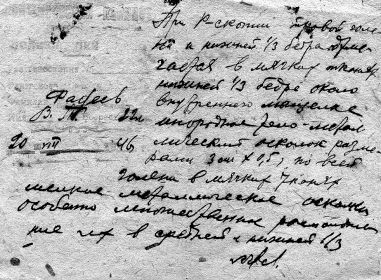 При R-скопии правой голе-
ни и нижней 1/3 бедра отме-
чается в мягких тканях
нижней 1/3 бедра около
внутреннего мыщелка
Фадеев
В. 22л.
инородное тело - метал
20 VIII 46
лический осколок разме-
рами 3 см х 0,5, по всей
голени в мягких тканях
мелкие металлические осколки
особенно множественное расположе-
ние их в средней и нижней 1/3